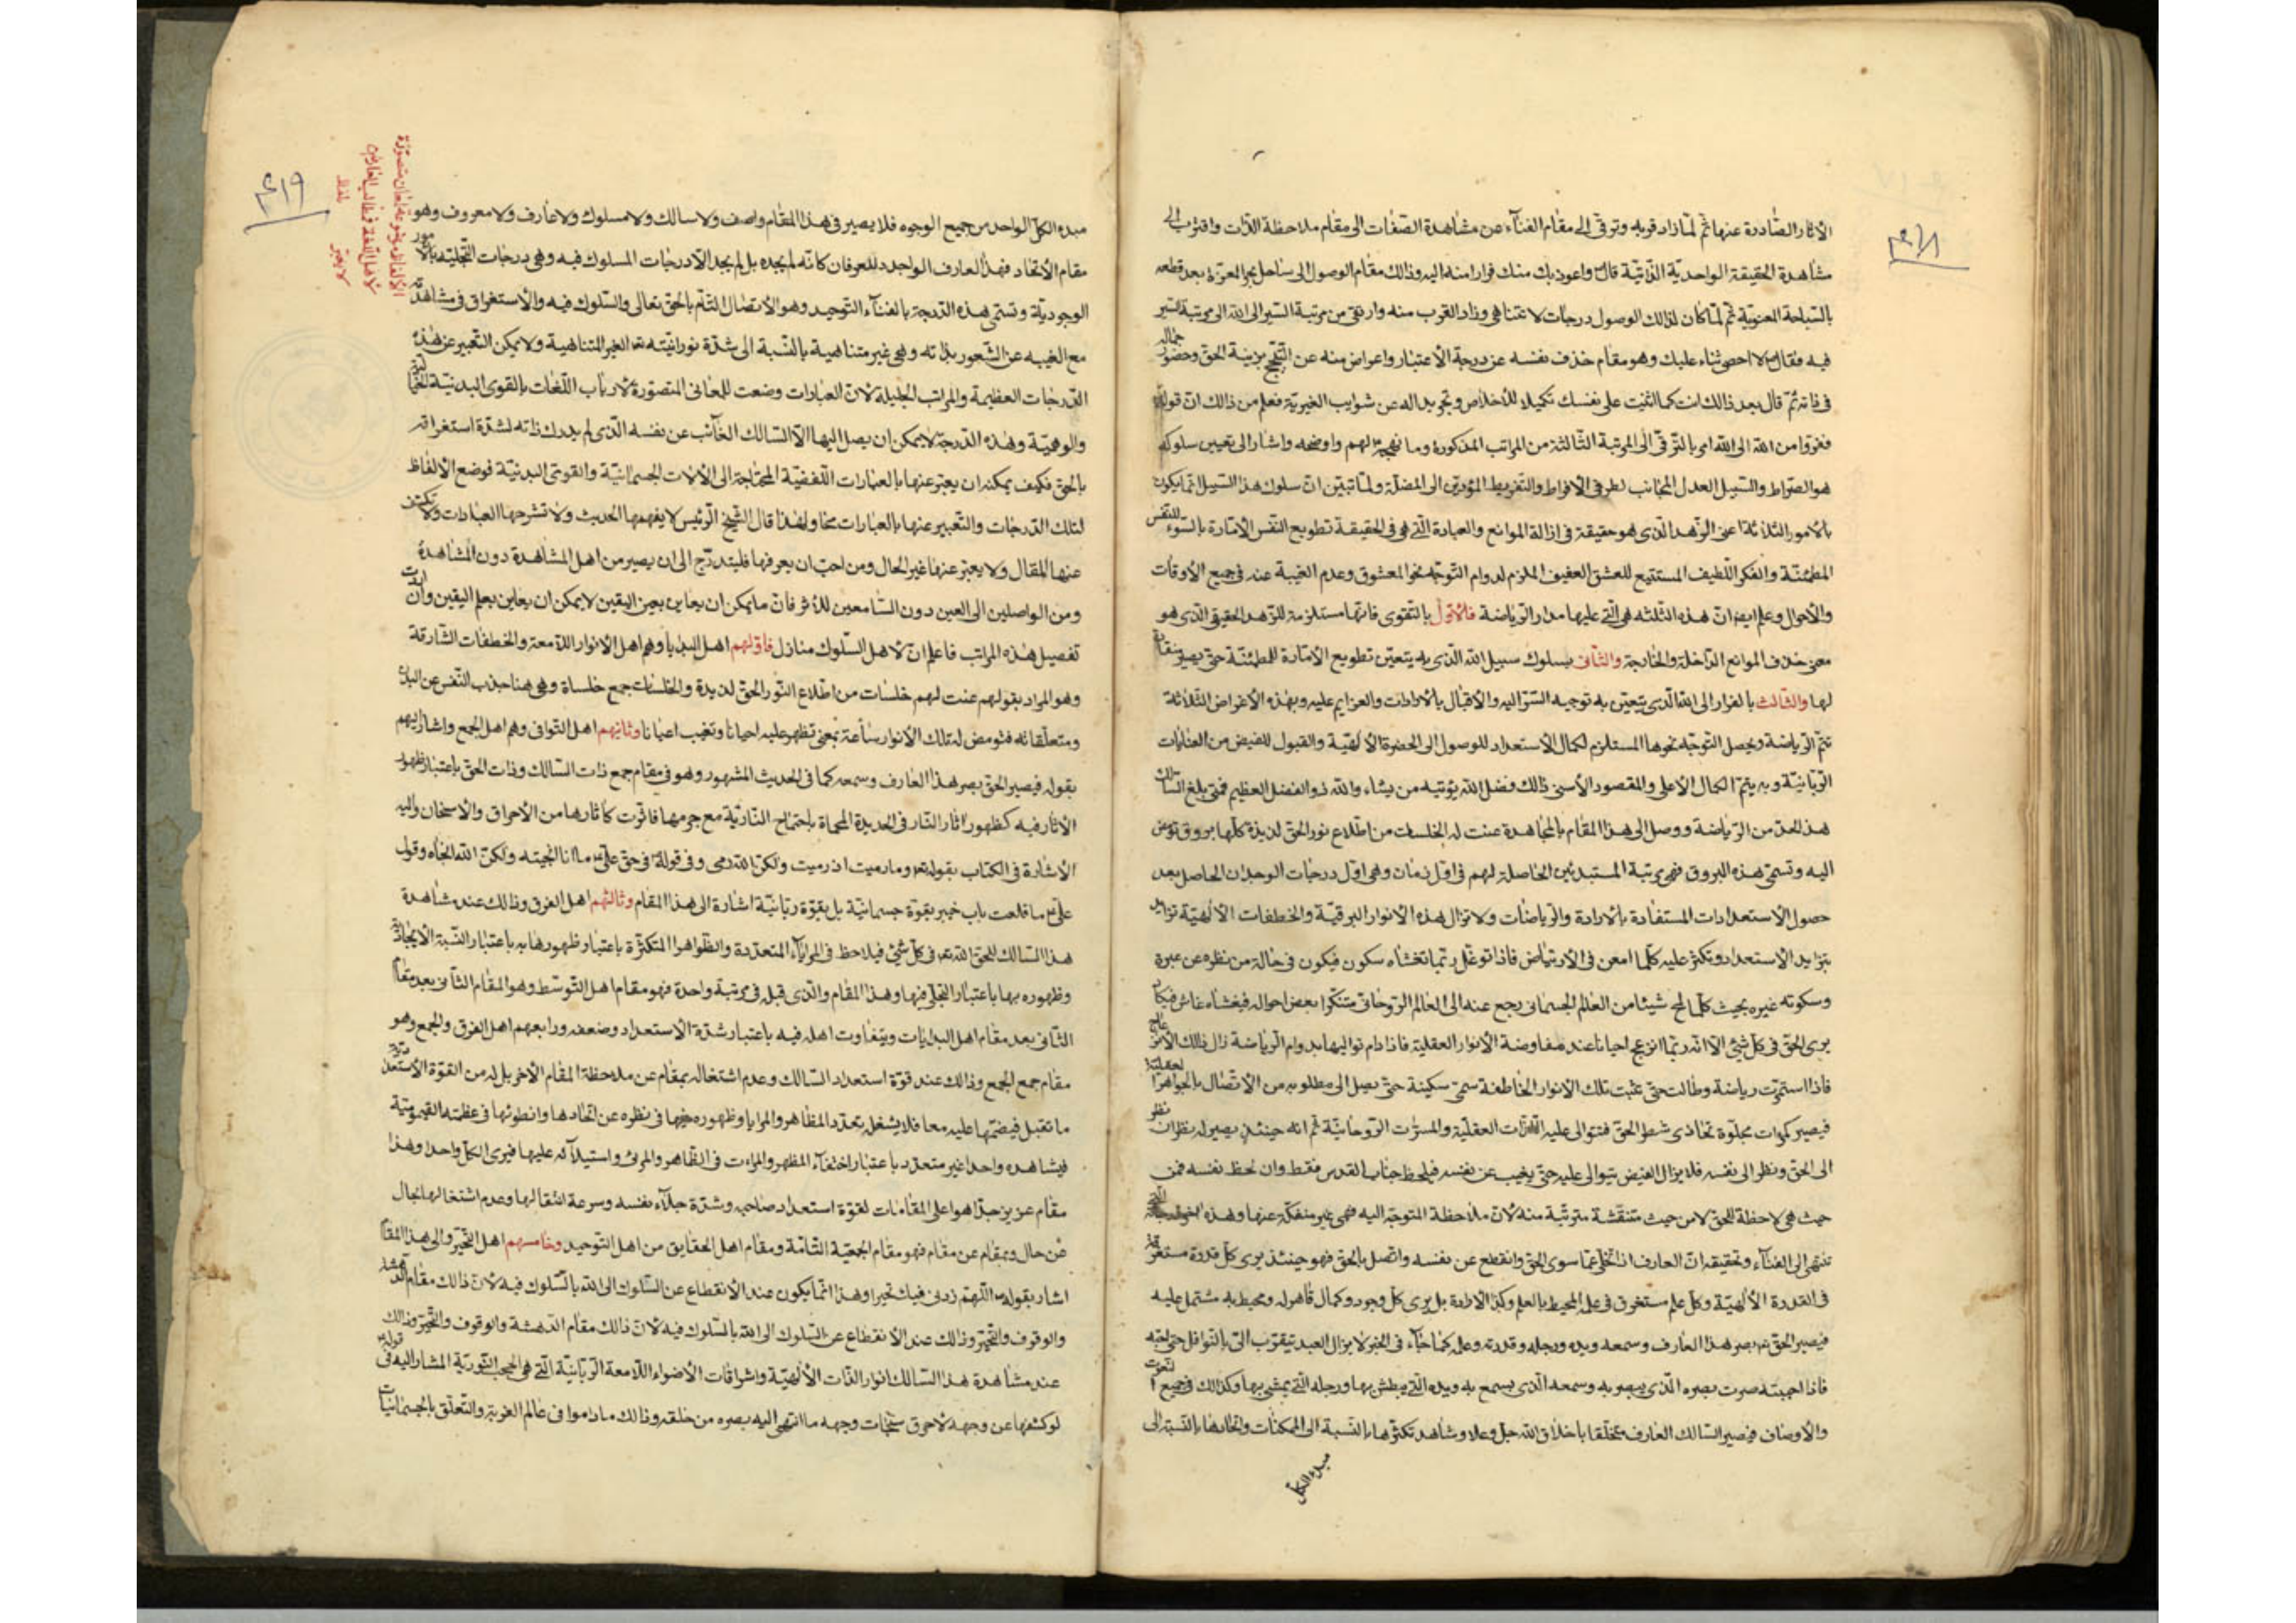 ٤١٨
الآثار الصّادرة عنها ثمّ لمّا زاد قربه وترقّى الى مقام الفنآء عن مشاهدة الصّفات الى مقام ملاحظة الذّات واقترب الى
مشاهدة الحقيقة الواحديّة الذّاتيّة قال واعوذ بك منك فرارا منه اليه وذالك مقام الوصول الى ساحل بحر العزّة بعد قطعه
بالسّباحة المعنويّة ثمّ لمّا كان لذالك الوصول درجات لا تتناهى وزاد القرب منه وارتقى من مرتبة السّير الى الله الى مرتبة السّير
فيه فقال لا احصى ثناء عليك وهو مقام حذف نفسه عن درجة الأعتبار واعراض منه عن التبجّح بزينة الحقّ وحضور جماله
فى ذاته ثمّ قال بعد ذالك انت كما اثنيت على نفسك تكميلا للأخلاص وتجريدا له عن شوايب الغيريّة فعلم من ذالك انّ قوله
ففرّوا من الله الى الله امر بالترقّى الى المرتبة الثّالثة من المراتب المذكورة وما نهجه لهم واوضحه واشار الى تعيين سلوكه
هو الصّراط والسّبيل العدل المجانب لطرفى الأفراط والتّفريط المؤدّيين الى المضلّة ولمّا تبيّن انّ سلوك هذا السّبيل انّما يكون
بالأمور الثّلاثة اعنى الزّهد الّذى هو حقيقة فى ازالة الموانع والعبادة الّتى هى فى الحقيقة تطويع النّفس الأمّارة بالسّوء للنّفس
المطمئنّة والفكر اللّطيف المستتبع للعشق العفيف الملزم لدوام التّوجّه نحو المعشوق وعدم الغيبة عنه فى جميع الأوقات
والأحوال وعلم ايضا انّ هذه الثّلثه هى الّتى عليها مدار الرّياضة فالأوّل بالتّقوى فانّها مستلزمة للزّهد الحقيقى الّذى هو
معنى حذف الموانع الدّاخلة والخارجة والثّانى بسلوك سبيل الله الّذى به يتعيّن تطويع الأمّارة للمطمئنّة حتّى يصير منقادة
لها والثّالث بالفرار الى الله الّذى يتعيّن به توجيه السّرّ اليه والأقبال بالأرادات والعزايم عليه وبهذه الأغراض الثّلاثة
تتمّ الرّياضة ويحصل التّوجّه نحوها المستلزم لكمال الأستعداد للوصول الى الحضرة الألهيّة والقبول للفيض من العنايات
الرّبّانيّة وبه يتمّ الكمال الأعلى والمقصود الأسنى ذالك فضل الله يؤتيه من يشاء والله ذو الفضل العظيم فمتى بلغ السّالك
هذا الحدّ من الرّياضة ووصل الى هذا المقام بالمجاهدة عنّت له الخلسات من اطّلاع نور الحقّ لذيذة كأنّها بروق تومض
اليه وتسمّى هذه البروق فهى مرتبة المستبدئين الحاصلة لهم فى اوّل زمان وهى اوّل درجات الوجدان الحاصل بعد
حصول الأستعدادات المستفادة بالأرادة والرّياضات ولا تزال هذه الأنوار البرقيّة والخطفات الألهيّة تزايد
بتزايد الأستعداد وتكثر عليه كلّما امعن فى الأرتياض فاذا توغّل ربّما تغشاه سكون فيكون فى حالة من نظره عن عبرة
وسكوته غيره بحيث كلّما لمح شيئا من العالم الجسمانى رجع عنه الى العالم الرّوحانى متذكّرا بعض احواله فيغشاه غاش فيكاد
يرى الحقّ فى كلّ شئ الّا انّه ربّما انزعج احيانا عند مفاوضة الأنوار العقليّة فاذا دام تواليها بدوام الرّياضة زال ذالك الأنزعاج
فاذا استمرّت رياضة وطالت حتّى تثبت تلك الأنوار الخاطفة سمّى سكينة حتّى يصل الى مطلوبه من الأتّصال بالجواهر العقليّة
فيصير كمرات مجلوّة تحاذى شطر الحقّ فتتوالى عليه اللّذّات العقليّة والمسرّات الرّوحانيّة ثمّ انّه حينئذ يصير له نظران نظر
الى الحقّ ونظر الى نفسه فلا يزال الفيض يتوالى عليه حتّى يغيب عن نفسه فيلحظ جناب القدس فقط وان لحظ نفسه فمن
حيث هى لاحظة للحقّ لا من حيث متنقّشة مترتّبة منه لأنّ ملاحظة المتوجّه اليه فهى غير منفكّة عنها وهذه اخر درجات الّتى
تنتهى الى الفناء وتحقيقه انّ العارف اذا تخلّى عمّا سوى الحقّ وانقطع عن نفسه واتّصل بالحقّ فهو حينئذ يرى كلّ قدرة مستغرقة
فى القدرة الألهيّة وكلّ علم مستغرق فى علمه المحيط بالعلم وكذا الأرادة بل يرى كلّ وجود وكمال قاهر له ومحيط به مشتمل عليه
فيصير الحقّ بصر هذا العارف وسمعه ويده ورجله وقدرته وعلمه كما جاء فى الخبر لا يزال العبد يتقرّب الىّ بالنّوافل حتّى احبّه
فاذا احببته صرت بصره الّذى يبصر به وسمعه الّذى يسمع به ويده الّتى يبطش بها ورجله الّتى يمشى بها وكذالك فى جميع النّعوت
والأوصاف فيصير السّالك العارف متخلّقا باخلاق الله جلّ وعلا وشاهد تكثّرها بالنّسبة الى الممكنات واتّحادها بالنّسبة الى
مبدء الكلّ
٤١٩
مبدء الكلّ الواحد من جميع الوجوه فلا يصير فى هذا المقام واصف ولا سالك ولا مسلوك ولا عارف ولا معروف وهو
مقام الأتّحاد فهذا العارف الواجد للعرفان كانّه لم يجده بل لم يجد الّا درجات المسلوك فيه وهى درجات التّجلّية بالأمور
الوجوديّة وتسمّى هذه الدّرجة بالفنآء التّوحيد وهو الأتّصال التّام بالحقّ تعالى والسّلوك فيه والأستغراق فى مشاهدته
مع الغيبه عن الشّعور بذاته وهى غير متناهية بالنّسبة الى شدّة نورانيّته تعالى الغير المتناهية ولا يمكن التّعبير عن هذه
الدّرجات العظيمة والمراتب الجليلة لأنّ العبارات وضعت للمعانى المتصوّرة لأرباب اللّغات بالقوى البدنيّة
والوهميّة وهذه الدّرجة لا يمكن ان يصل اليها الّا السّالك الغائب عن نفسه الّذى لم يدرك ذاته لشدّة استغراقه
بالحقّ فكيف يمكنه ان يعبّر عنها بالعبارات اللّفظيّة المحتاجة الى الألات الجسمانيّة والقوى البدنيّة فوضع الألفاظ
لتلك الدّرجات والتّعبير عنها بالعبارات محال ولهذا قال الشّيخ الرّئيس لا يفهمها الحديث ولا تشرحها العبارات ولا يكشف
عنها المقال ولا يعبّر عنها غير الحال ومن احبّ ان يعرفها فليتدرّج الى ان يصير من اهل المشاهدة دون المشافهة
ومن الواصلين الى العين دون السّامعين للأثر فانّ ما يمكن ان يعاين بعين اليقين لا يمكن ان يعاين بعلم اليقين وان اردت
تفصيل هذه المراتب فاعلم انّ لأهل السّلوك منازل فاوّلهم اهل البدايا وهم اهل الأنوار اللّامعة والخطفات الشّارقة
وهو المراد بقولهم عنت لهم خلسات من اطّلاع النّور الحقّ لذيذة والخلسات جمع خلساة وهى هنا جذب النّفس عن البدن
ومتعلّقاته فتومض له تلك الأنوار ساعة بمعنى تظهر عليه احيانا وتغيب احيانا وثانيهم اهل التّوافى وهم اهل الجمع واشار اليهم
بقوله فيصير الحقّ بصر هذا العارف وسمعه كما فى الحديث المشهور وهو فى مقام جمع ذات السّالك وذات الحقّ باعتبار ظهور
الأثار فيه كظهور اثار النّار فى الحديدة المحماة باجتماع النّاريّة مع جرمها فاثّرت كآثارها من الأحراق والأسخان واليه
الأشارة فى الكتاب بقوله تعالى وما رميت اذ رميت ولكنّ الله رمى وفى قوله فى حقّ علىّ ما انا انتجيته ولكنّ الله انتجاه وقول
علىّ ما قلعت باب خيبر بقوّة جسمانيّة بل بقوّة ربّانيّة اشارة الى هذا المقام وثالثهم اهل الفرق وذالك عند مشاهدة
هذا السّالك للحقّ الله تعالى فى كلّ شئ فيلاحظ فى المراياء المتعدّدة والظّواهر المتكثّرة باعتبار ظهورها به باعتبار النّسبة الأيجاديّة
وظهوره بها باعتبار التجلّى فيها وهذا المقام والّذى قبله فى مرتبة واحدة فهو مقام اهل التّوسّط وهو المقام الثّانى بعد مقام
الثّانى بعد مقام اهل البدايات ويتفاوت اهله فيه باعتبار شدّة الأستعداد وضعفه ورابعهم اهل الفرق والجمع وهو
مقام جمع الجمع وذالك عند قوّة استعداد السّالك وعدم اشتغاله بمقام عن ملاحظة المقام الأخر بل له من القوّة الأستعداديّة
ما تقبل فيضهما عليه معا فلا يشغله تعدّد المظاهر والمرايا وظهوره فيها فى نظره عن اتّحادها وانطوائها فى عظمته القيّوميّة
فيشاهده واحدا غير متعدّد باعتبار اختفآء المظهر والمراءت فى الظّاهر والمرئى واستيلآئه عليها فيرى الكلّ واحدا وهذا
مقام عزيز جدّا هو اعلى المقامات لقوّة استعداد صاحبه وشدّة جلآء نفسه وسرعة انتقالها وعدم اشتغالها بحال
عن حال وبمقام عن مقام فهو مقام الجمعيّة التّامّة ومقام اهل الحقايق من اهل التّوحيد وخامسهم اهل التّحيّر والى هذا المقام
اشار بقوله اللّهمّ زدنى فيك تحيّرا وهذا انّما يكون عند الأنقطاع عن السّلوك الى الله بالسّلوك فيه لأنّ ذالك مقام الدّهشة
والوقوف والتّحيّر وذالك عند الأنقطاع عن السّلوك الى الله بالسّلوك فيه لأنّ ذالك مقام الدّهشة والوقوف والتّحيّر وذالك
عند مشاهدة هذا السّالك انوار الذّات الألهيّة واشراقات الأضواء اللّامعة الرّبّانيّة الّتى هى الحجب النّوريّة المشار اليه فى قوله
لو كشفها عن وجهه لأحرق سبحات وجهه ما انتهى اليه بصره من خلقه وذالك ما داموا فى عالم الغربة والتّعلّق بالجسمانيّات